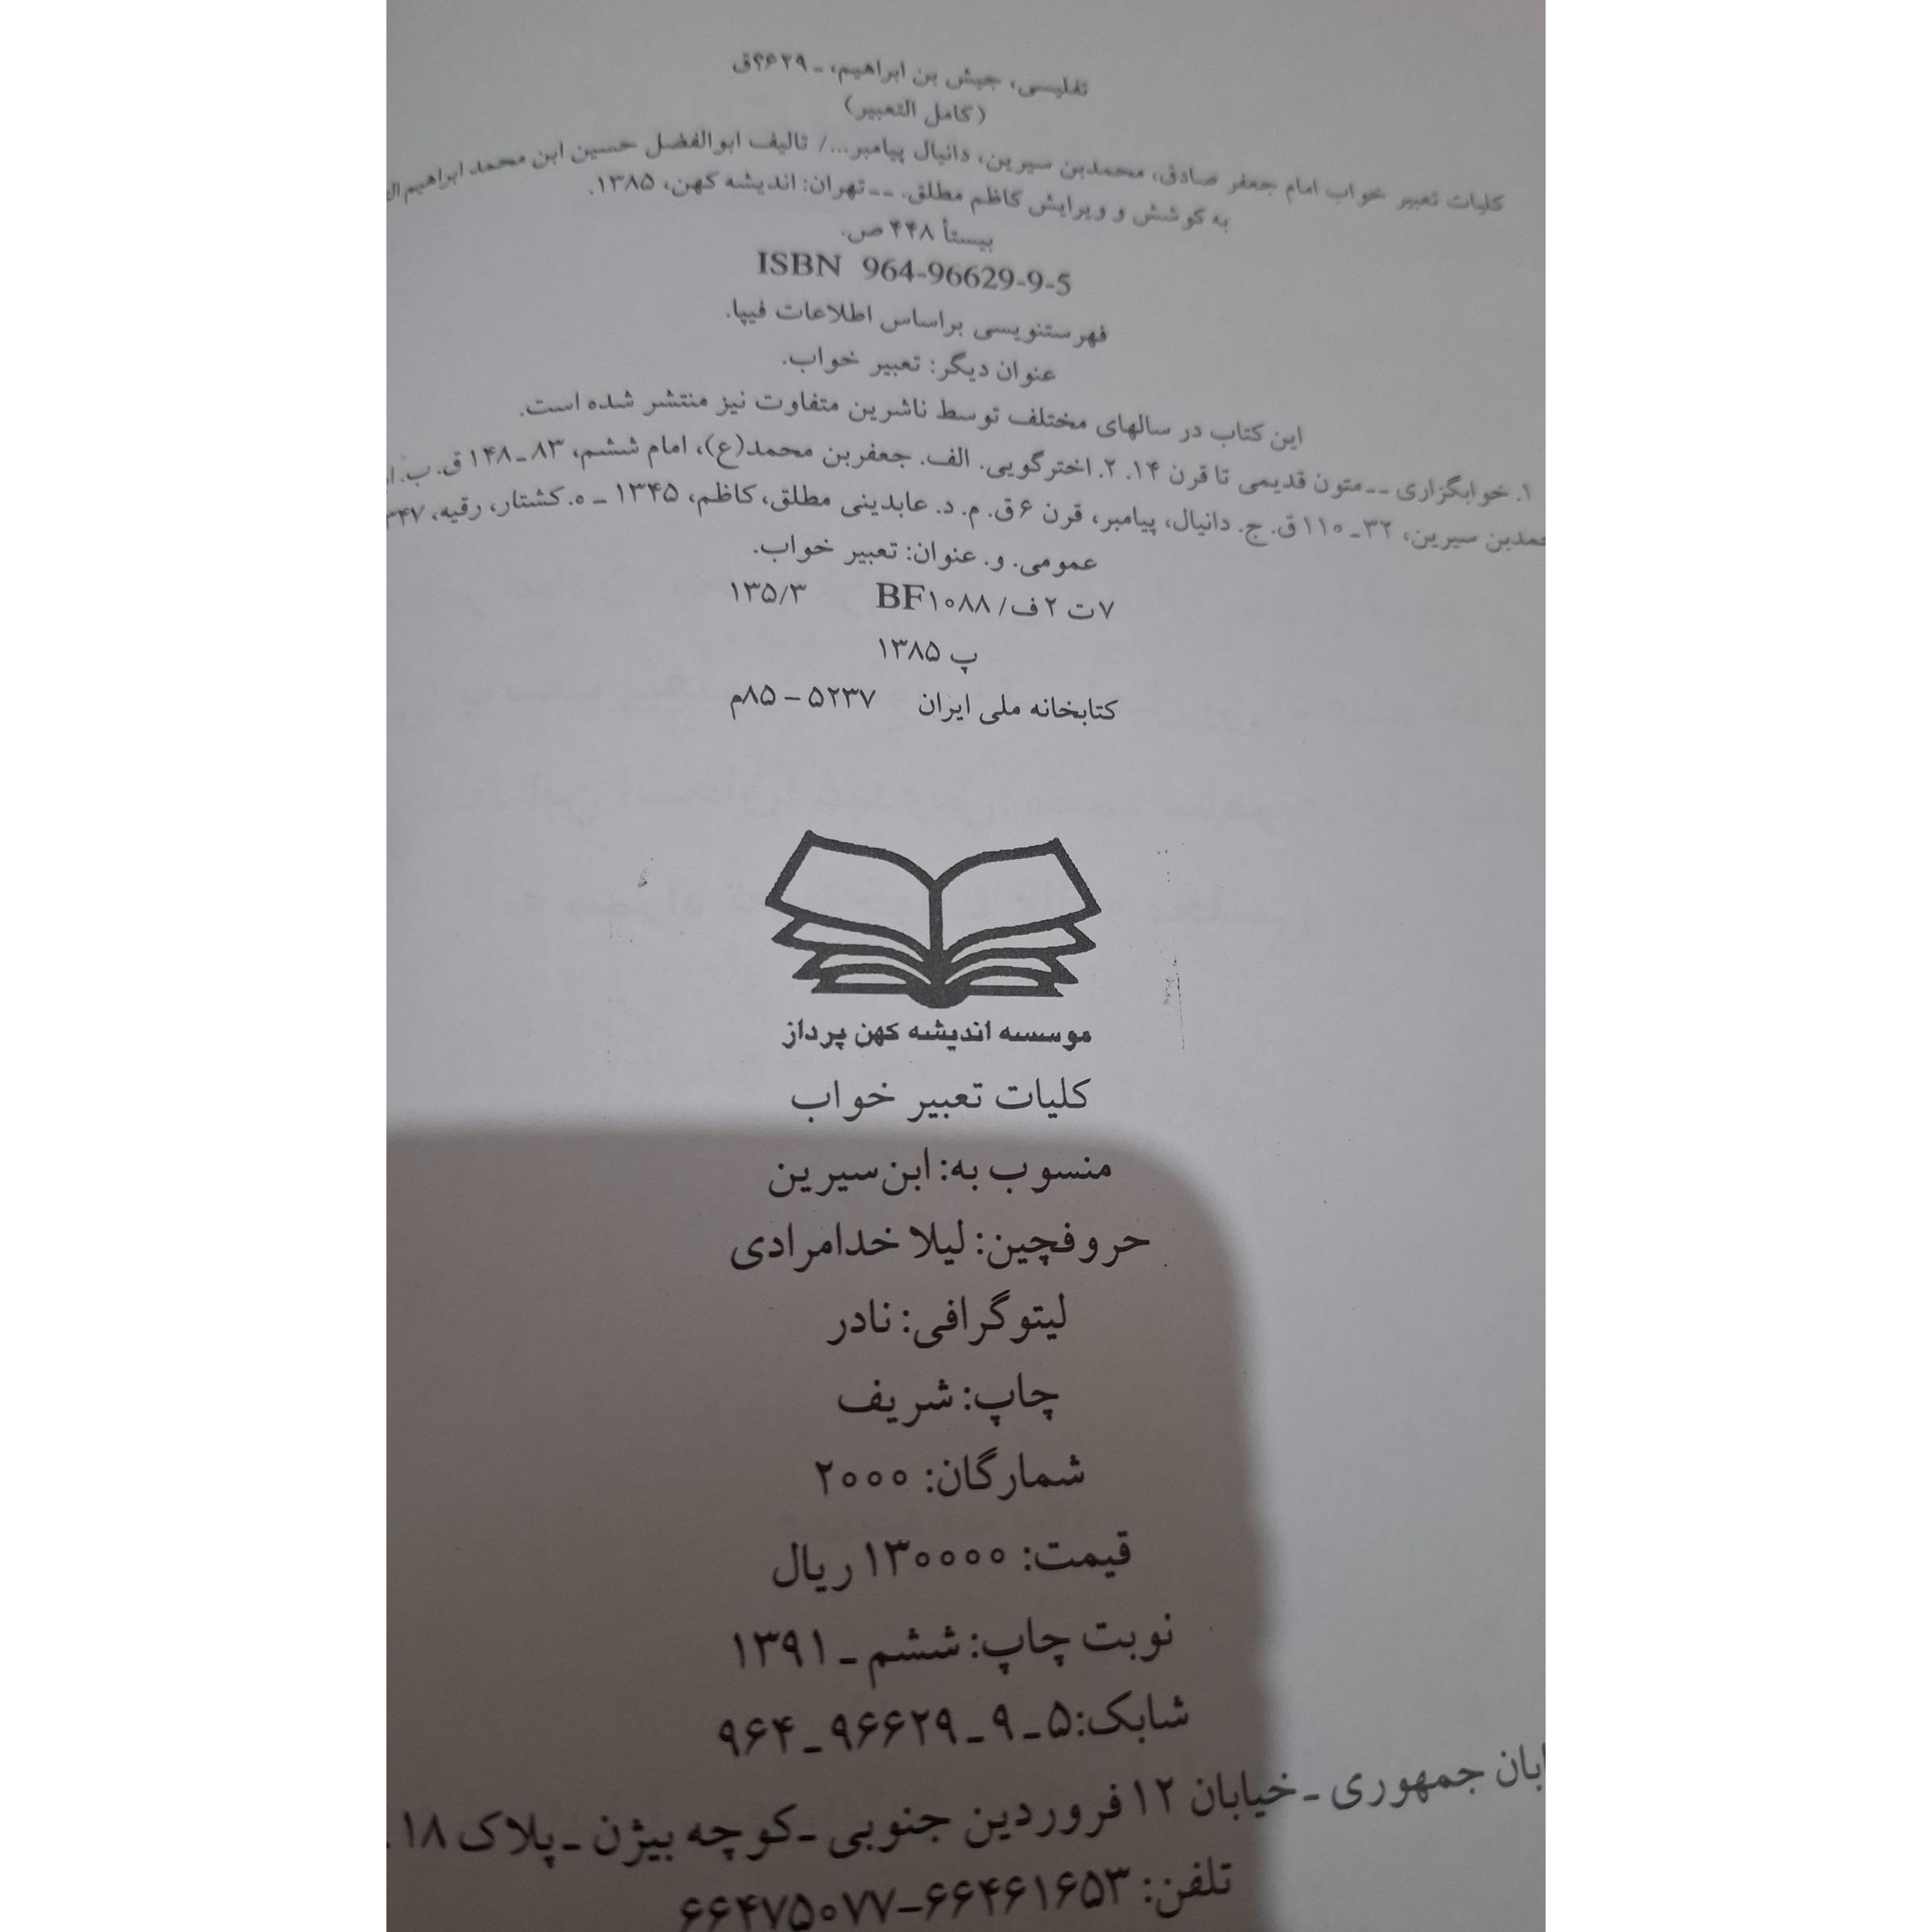 تفلیسی، جیش بن ابراهیم، ـ ۶۲۹؟ق
(کامل التعبیر)
کلیات تعبیر خواب امام جعفر صادق، محمدبن سیرین، دانیال پیامبر.../ تالیف ابوالفضل حسین ابن محمد ابراهیم
به کوشش و ویرایش کاظم مطلق. -- تهران: اندیشه کهن، ۱۳۸۵.
بیستأ ۴۴۸ ص.
ISBN 964-96629-9-5
فهرستنویسی براساس اطلاعات فیپا.
عنوان دیگر: تعبیر خواب.
این کتاب در سالهای مختلف توسط ناشرین متفاوت نیز منتشر شده است.
۱. خوابگزاری -- متون قدیمی تا قرن ۱۴. ۲. اخترگویی. الف. جعفربن محمد(ع)، امام ششم، ۸۳ ـ ۱۴۸ ق. ب.
بن سیرین، ۳۲ ـ ۱۱۰ ق. ج. دانیال، پیامبر، قرن ۶ ق. م. د. عابدینی مطلق، کاظم، ۱۳۴۵ ـ ه. کشتار، رقیه،
عمومی. و. عنوان: تعبیر خواب.
۷ت ۲ف/ BF۱۰۸۸ ۱۳۵/۳
پ ۱۳۸۵
کتابخانه ملی ایران ۵۲۳۷ – ۸۵م
موسسه اندیشه کهن پرداز
کلیات تعبیر خواب
منسوب به: ابن‌سیرین
حروفچین: لیلا خدامرادی
لیتوگرافی: نادر
چاپ: شریف
شمارگان: ۲۰۰۰
قیمت: ۱۳۰۰۰۰ ریال
نوبت چاپ: ششم ـ ۱۳۹۱
شابک: ۵ ـ ۹ ـ ۹۶۶۲۹ ـ ۹۶۴
جمهوری ـ خیابان ۱۲ فروردین جنوبی ـ کوچه بیژن ـ پلاک ۱۸.
تلفن: ۶۶۴۶۱۶۵۳–۶۶۴۷۵۰۷۷